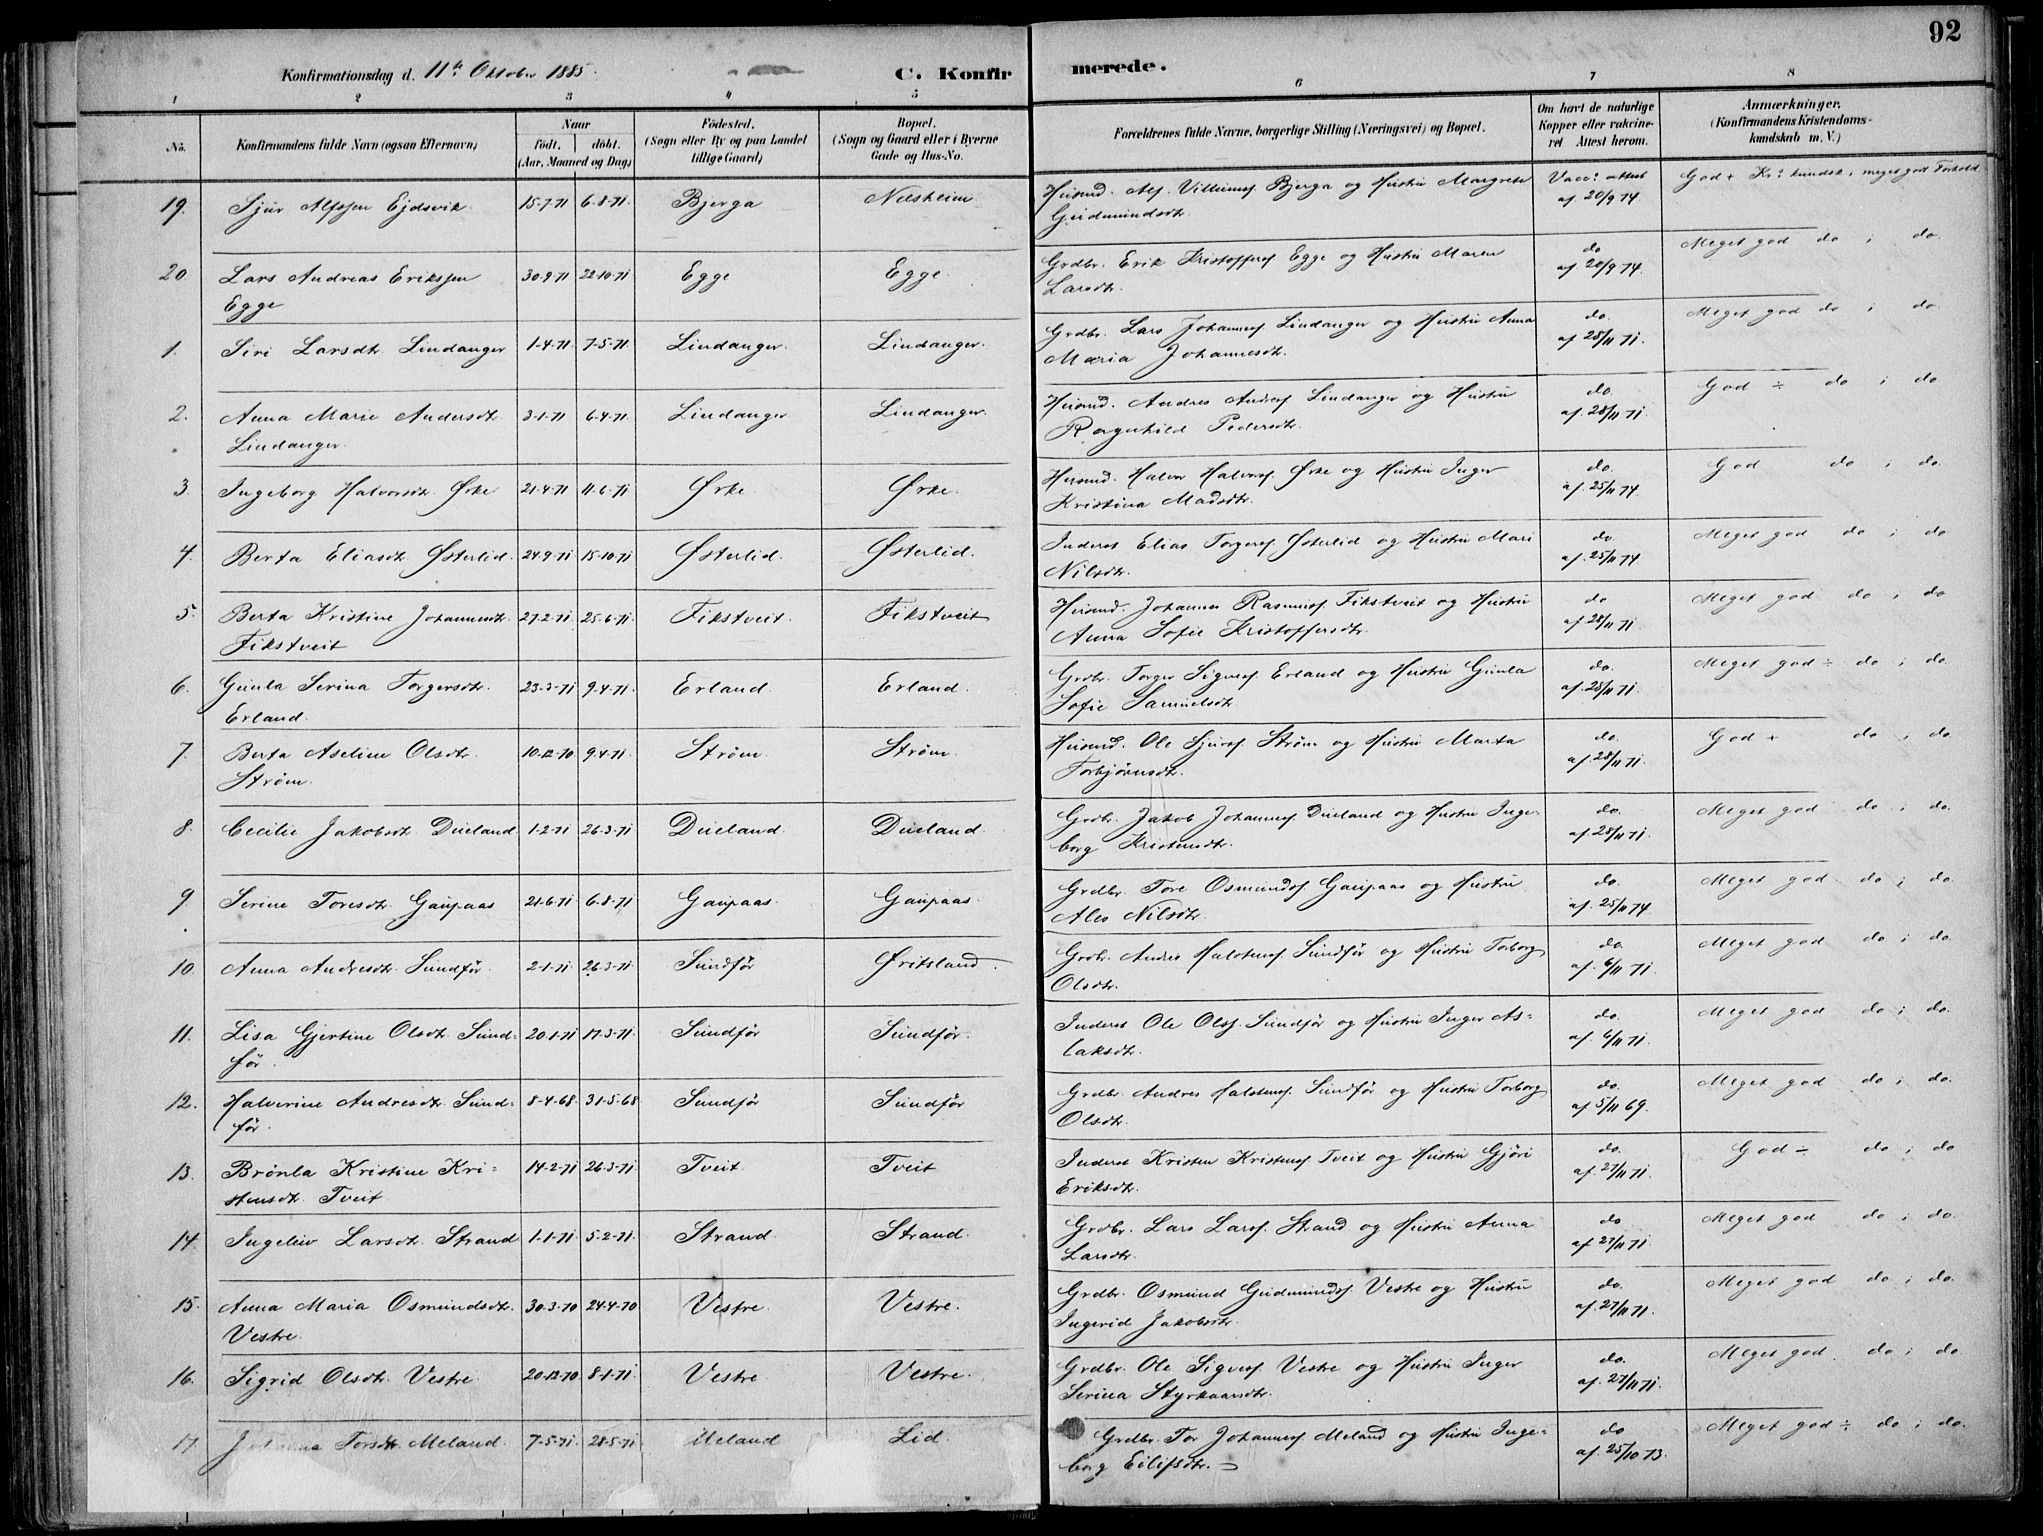 92
Konfirmationsdag d. 11te Oktober 1885.
C. Konfirmerede.
1 2 3 4 5 6 7 8
No.
Konfirmandens fulde Navn (ogsaa Efternavn)
Naar
födt. döbt.
(Aar, Maaned og Dag)
Födested.
(Sogn eller By og paa Landet
tillige Gaard)
Bopæl.
(Sogn og Gaard eller i Byerne
Gade og Hus-No.
Forældrenes fulde Navne, borgerlige Stilling (Næringsvei) og Bopæl.
Om havt de naturlige
Kopper eller vakcine-
ret Attest herom.
Anmærkninger.
(Konfirmandens Kristendoms-
kundskab m. V.)
19. Sjur Alfssen Ejdsvik 15-7-71 6-8-71. Bjerga Næsheim Husmd. Alf Villumsf. Bjerga og Hustru Margrete Vacc: attest God + Kr: kundsk; meget god Forhold
Gudmundsdtr. af 20/9 74.
20 Lars Andreas Erikssen 30-9-71 22-10-71 Egge Egge. Grdbr. Erik Kristoffersf Egge og Hustru Maren do Meget god do ; do.
Egge Larsdtr. af 20/9 74.
1. Siri Larsdtr. Lindanger 1-4-71. 7-5-71. Lindanger. Lindanger. Grdbr. Lars Johannesf. Lindanger og Hustru Anna do. Meget god do ; do.
Maria Johannesdtr. af 28/11 71.
2. Anna Marie Andersdtr. 3-1-71 6-4-71. Lindanger Lindanger. Husmd. Andres Andersf Lindanger og Hustru do. God ÷ do ; do
Lindanger. Ragnhild Pedersdtr. af 28/11 71.
3. Ingeborg Halvorsdtr. Ørke 21-4-71 11-6-71 Ørke. Ørke. Husmd. Halvor Halvorsf. Ørke og Hustru Inger do. God do ; do.
Kristina Madsdtr. af. 25/11 74.
4. Berta Eliasdtr. Østerlid. 24-9-71 15-10-71 Østerlid. Østerlid. Inderst Elias Torgersf. Østerlid og Hustru Mari do. Meget god do ; do
Nilsdtr. af. 25/11 74
5. Berta Kristine Johannesdtr. 27-2-71 25-6-71. Fikstveit. Fikstveit Husmd. Johannes Rasmusf Fikstveit og Hustru do Meget god do ; do
Fikstveit Anna Sofie Kristoffersdtr. af 28/11 71.
6. Gunla Serina Torgersdtr. 23-3-71 9-4-71. Erland. Erland. Grdbr. Torger Sigvesf Erland og Hustru Gunla do. Meget god ÷ do ; do
Erland. Sofie Samuelsdtr. af. 28/11 71.
7. Berta Aseline Olsdtr. 10-12-70 9-4-71. Strøm. Strøm. Husmd. Ole Sjursf. Strøm og Hustru Marta do. God + do ; do.
Strøm. Torbjørnsdtr. af. 28/11 71.
8. Cecilie Jakobsdtr. Dueland 1-2-71 26-3-71 Dueland. Dueland. Grdbr. Jakob Johannesf Dueland og Hustru Inge- do. Meget god do ; do.
borg Kristensdtr. af 28/11 71.
9 Serine Toresdtr. Gaupaas 21-6-71 6-8-71 Gaupaas Gaupaas. Grdbr. Tore Osmundsf Gaupaas og Hustru do. Meget god do ; do.
Ales Nilsdtr. af. 25/11 74
10. Anna Andresdtr. Sundfør. 2-1-71 26-3-71. Sundfør Fritsland. Grdbr. Andres Halstensf. Sundfør og Hustru Torborg do. Meget god do ; do.
Olsdtr. af. 6/11 71.
11. Lisa Gjertine Olsdtr. Sund- 20-1-71 17-3-71. Sundfør Sundfør. Inderst Ole Olsf. Sundfør og Hustru Inger As- do. Meget god do ; do.
før. laksdtr. af. 6/11 71.
12. Halverine Andresdtr. Sund- 8-4-68. 31-5-68 Sundfør Sundfør Grdbr. Andres Halstensf. Sundfør og Hustru Torborg do. Meget god do ; do.
før. Olsdtr. af 5/11 69.
13. Brønla Kristine Kri- 14-2-71 26-3-71 Tveit Tveit Inderst Kristen Kristensf Tveit og Hustru Gjøri do. God ÷ do ; do
stensdtr. Tveit Eriksdtr. af. 27/11 71.
14. Ingeleiv Larsdtr. Strand 1-1-71. 5-2-71. Strand. Strand. Grdbr. Lars Larsf. Strand og Hustru Anna do Meget god do ; do.
Larsdtr. af. 27/11 71.
15. Anna Maria Osmundsdtr. 30-3-70 24-4-70 Vestre. Vestre. Grdbr. Osmund Gudmundsf Vestre og Hustru do. Meget god do ; do.
Vestre. Ingerid Jakobsdtr. af. 27/11 71.
16. Sigrid Olsdtr. Vestre. 20-12-70 8-1-71. Vestre Vestre. Grdbr. Ole Sigvesf Vestre og Hustru Inger do. Meget god. do ; do.
Serina Styrkaarsdtr. af. 27/11 71.
17. Torsdtr. Meland. 7-5-71. 28-5-71 Meland Lid. Grdbr. Tor Johannesf. Meland og Hustru Inge- do Meget god ÷ do ; do.
borg Eilifsdtr. af 25/10 73.